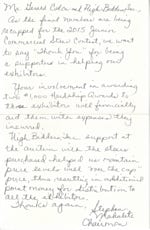 As the final numbers are being
recapped for the 2015 Junior
Commercial Steer Contest, we want
to say "Thank You" for being
a supporter in helping our
exhibitors.
Your involvement on awarding
$1,000 Hardship Awards to
these exhibitors will financially
aid them with expenses they
incurred.
High Bidders Inc. support at
the auction with the steer
purchased helped us maintain
price levels well "over the cap"
price, thus resulting in additional
point money for distribution to
all the exhibitors.
Thanks again,
Stephen
Chairman